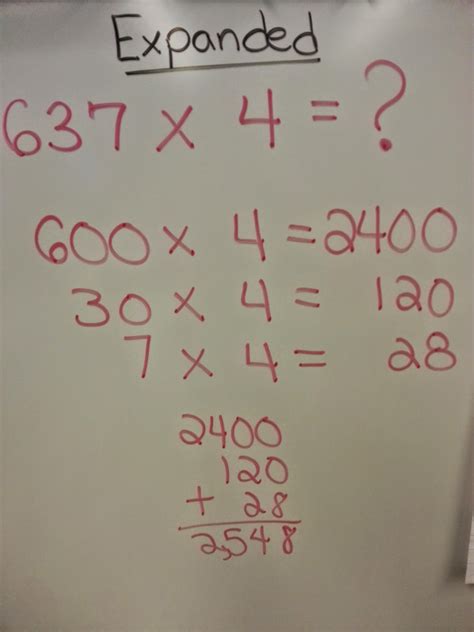 Expanded
637 x 4 = ?
600 x 4 = 2400
30 x 4 = 120
7 x 4 = 28
2400
120
+ 28
2,548